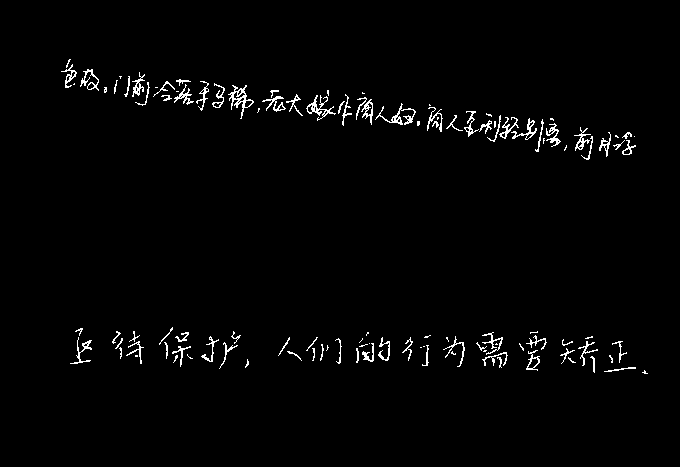 色故。门前冷落车马稀，老大嫁作商人妇。商人重利轻别离，前月浮
亟待保护，人们的行为需要矫正.